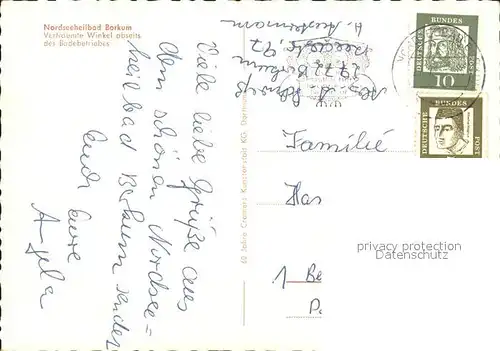 Nordseeheilbad Borkum
Verträumte Winkel abseits
des Badebetriebes
Viele liebe Grüße aus
dem schönen Nordsee=
heilbad Borkum sendet
Euch Eure
Angela
2972 Borkum
60 Jahre Cramers Kunstanstalt KG. Dortmund
Familie
Has
1 Be
D.
DEUTSCHE
BUNDES
POST
10
DEUTSCHE
BUNDES
POST
privacy protection
Datenschutz